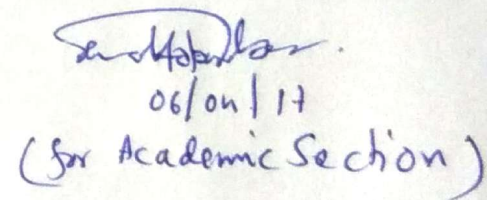 06/04/17
(for Academic Section)